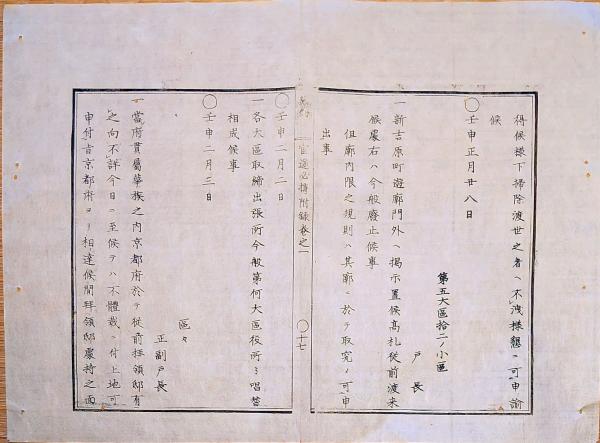 得候様下掃除渡世之者ヘ不洩様懇ニ可申諭
候
〇壬申正月廿八日
第五大區拾二ノ小區
戸長
一新吉原町遊廓門外ヘ掲示置候高札従前渡来
候處右ハ今般廢止候事
但廓内限之規則ハ其廓ニ於テ取究メ可申
出事
官途必携附録巻之一
〇十七
〇壬申二月二日
一各大區取締出張所今般第何大區役所ト唱替
相成候事
〇壬申二月三日
區々
正副戸長
一當府貫屬華族之内京都府於テ従前拝領邸有
之向不詳今日ニ至候テハ不體裁ニ付上地可
申付旨京都府ヨリ相達候間拝領邸處持之面